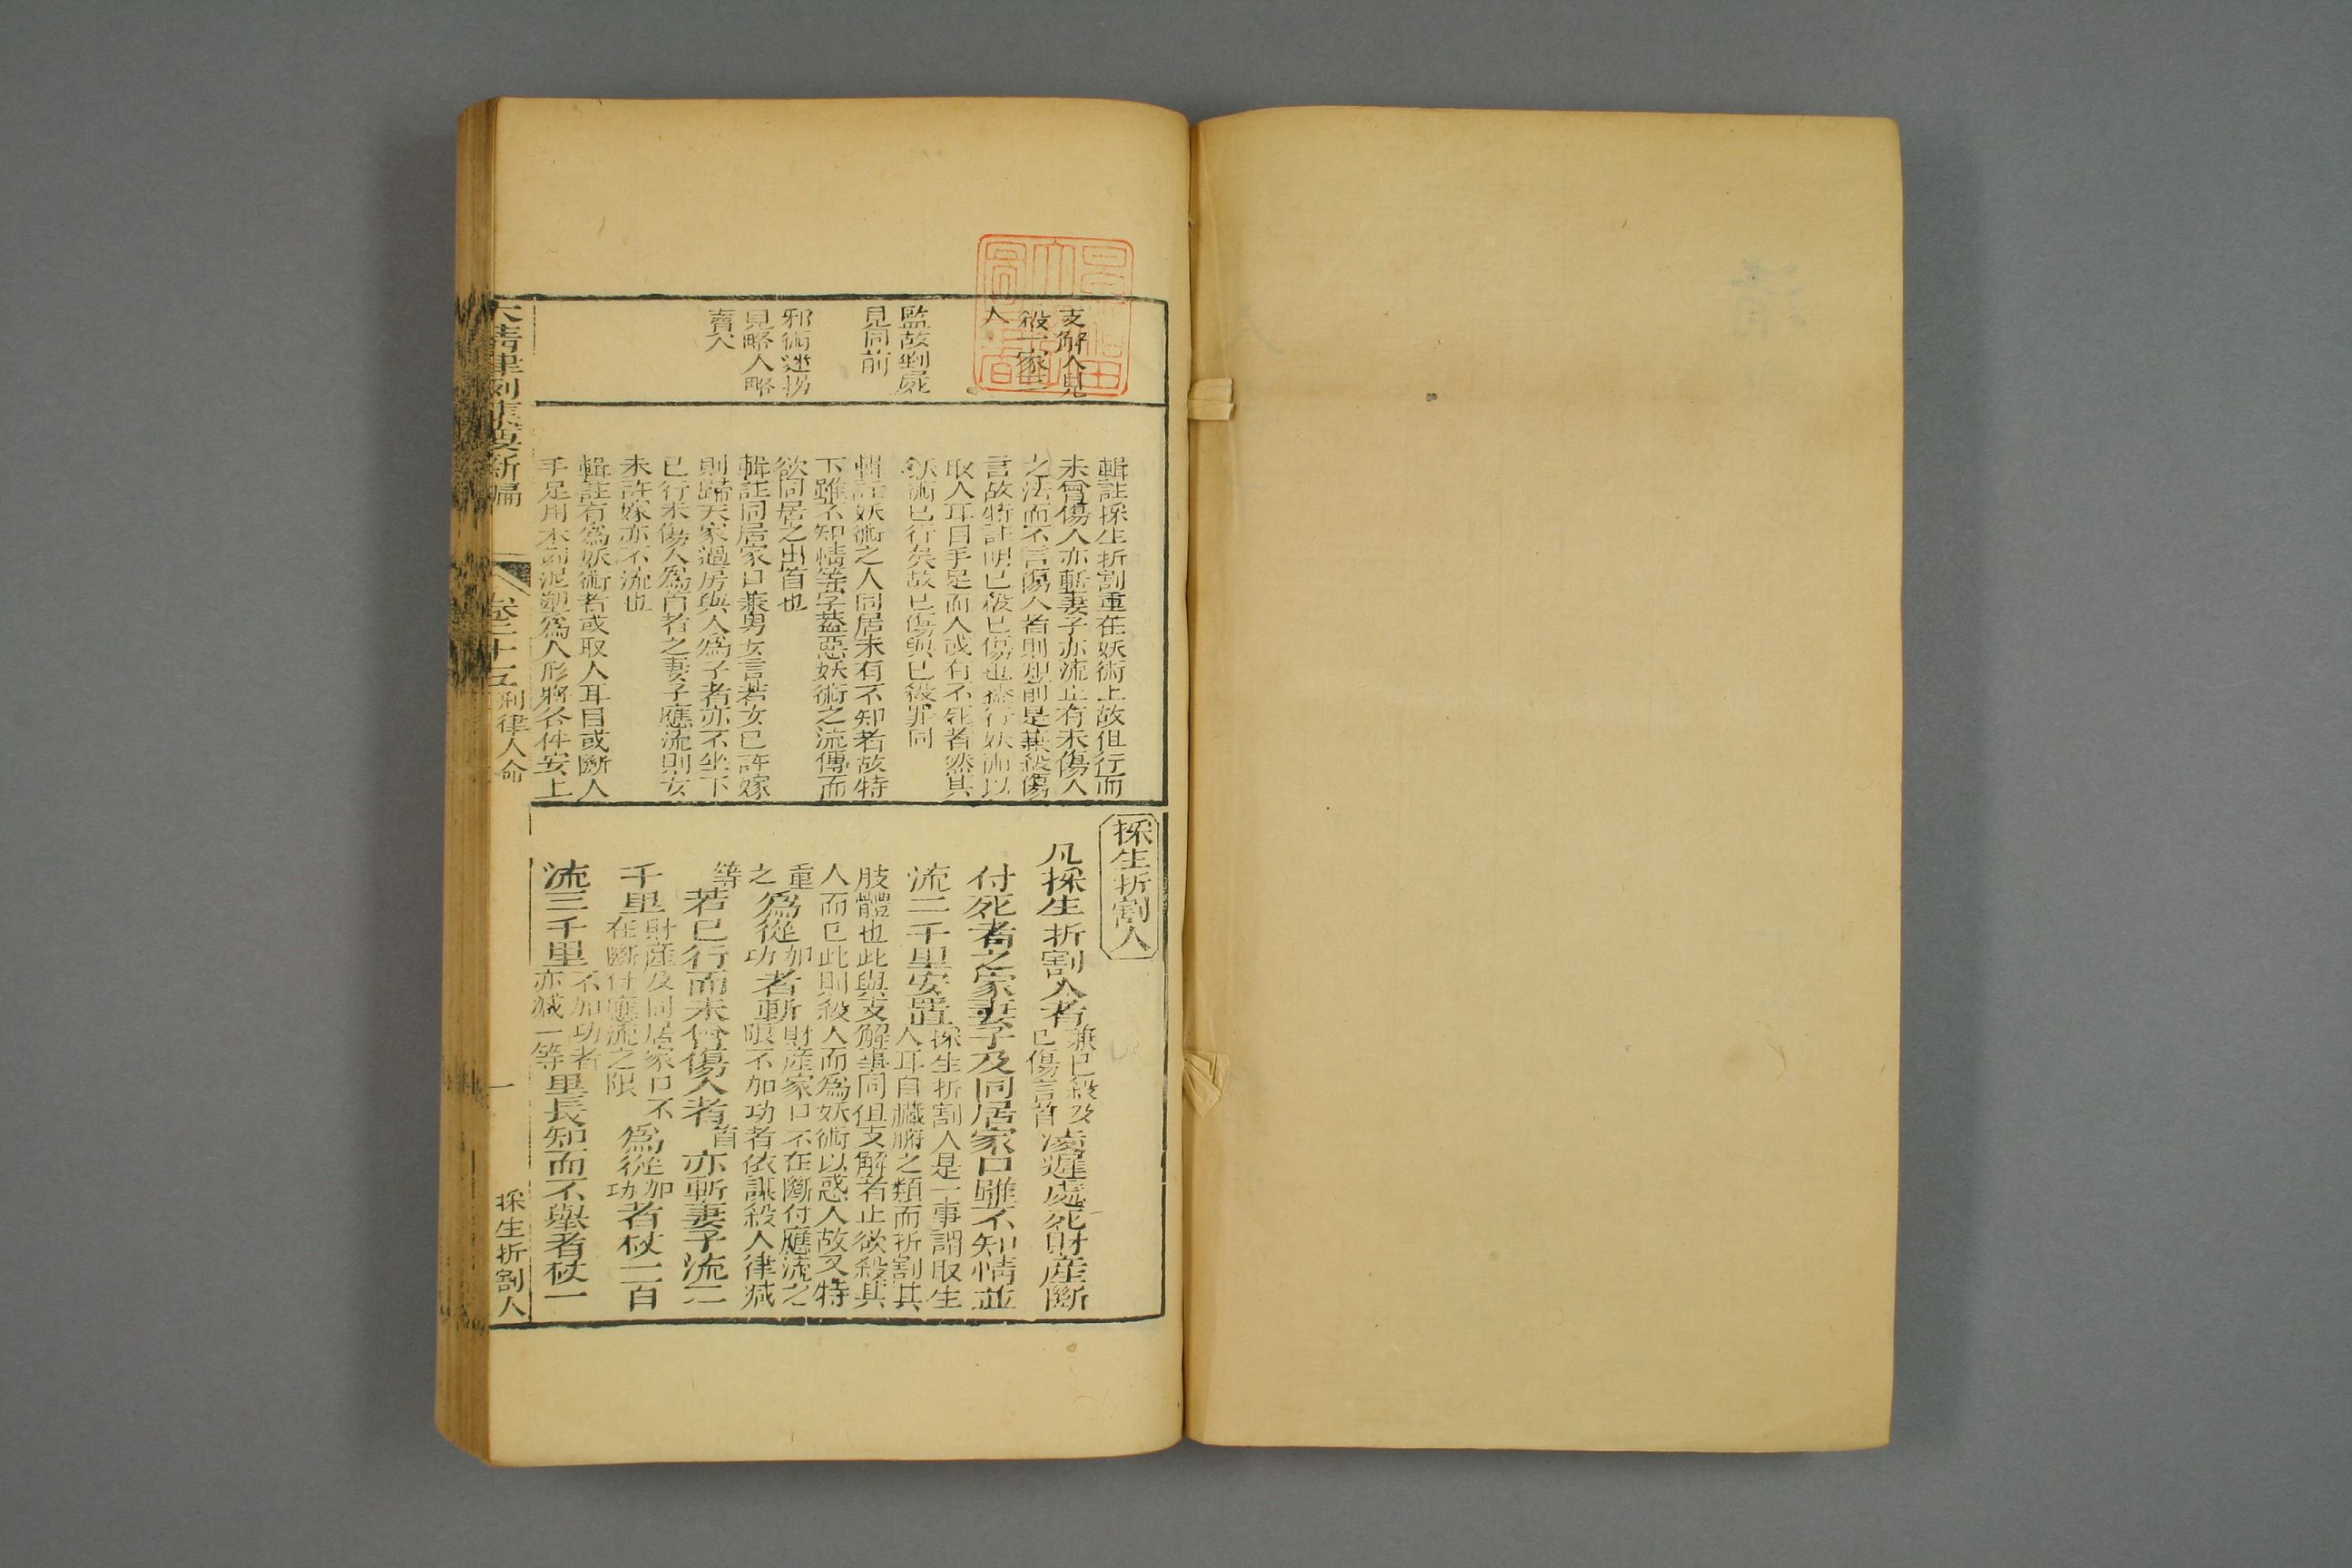 支解人見
殺一家三
人
監故剝屍
見同前
邪術迷拐
見略人略
賣人
輯註採生折割重在妖術上故但行而
未曾傷人亦斬妻子亦流止有未傷人
之法而不言傷人者則規前是兼殺傷
言故特註明已殺已傷也操行妖術以
取人耳目手足而人或有不死者然其
妖術已行矣故已傷與已殺罪同
輯註妖術之人同居未有不知者故特
下雖不知情等字蓋惡妖術之流傳而
欲同居之出首也
輯註同居家口兼男女言若女已許嫁
則歸夫家過房與人為子者亦不坐下
已行未傷人為首者之妻子應流則女
未許嫁亦不流也
輯註有為妖術者或取人耳目或斷人
手足用木刻泥塑為人形將各件安上
採生折割人
凡採生折割人者兼已殺及已傷言首凌遲處死財產斷
付死者之家妻子及同居家口雖不知情並
流二千里安置採生折割人是一事謂取生人耳目臟腑之類而折割其
肢體也此與支解事同但支解者止欲殺其
人而已此則殺人而為妖術以惑人故又特
重之為從加功者斬財產家口不在斷付應流之限不加功者依謀殺人律減
等若已行而未曾傷人者首亦斬妻子流二
千里財產及同居家口不在斷付應流之限為從加功者杖一百
流三千里不加功者亦減一等里長知而不舉者杖一
大清律例集要新編 卷二十五 刑律人命 一 採生折割人